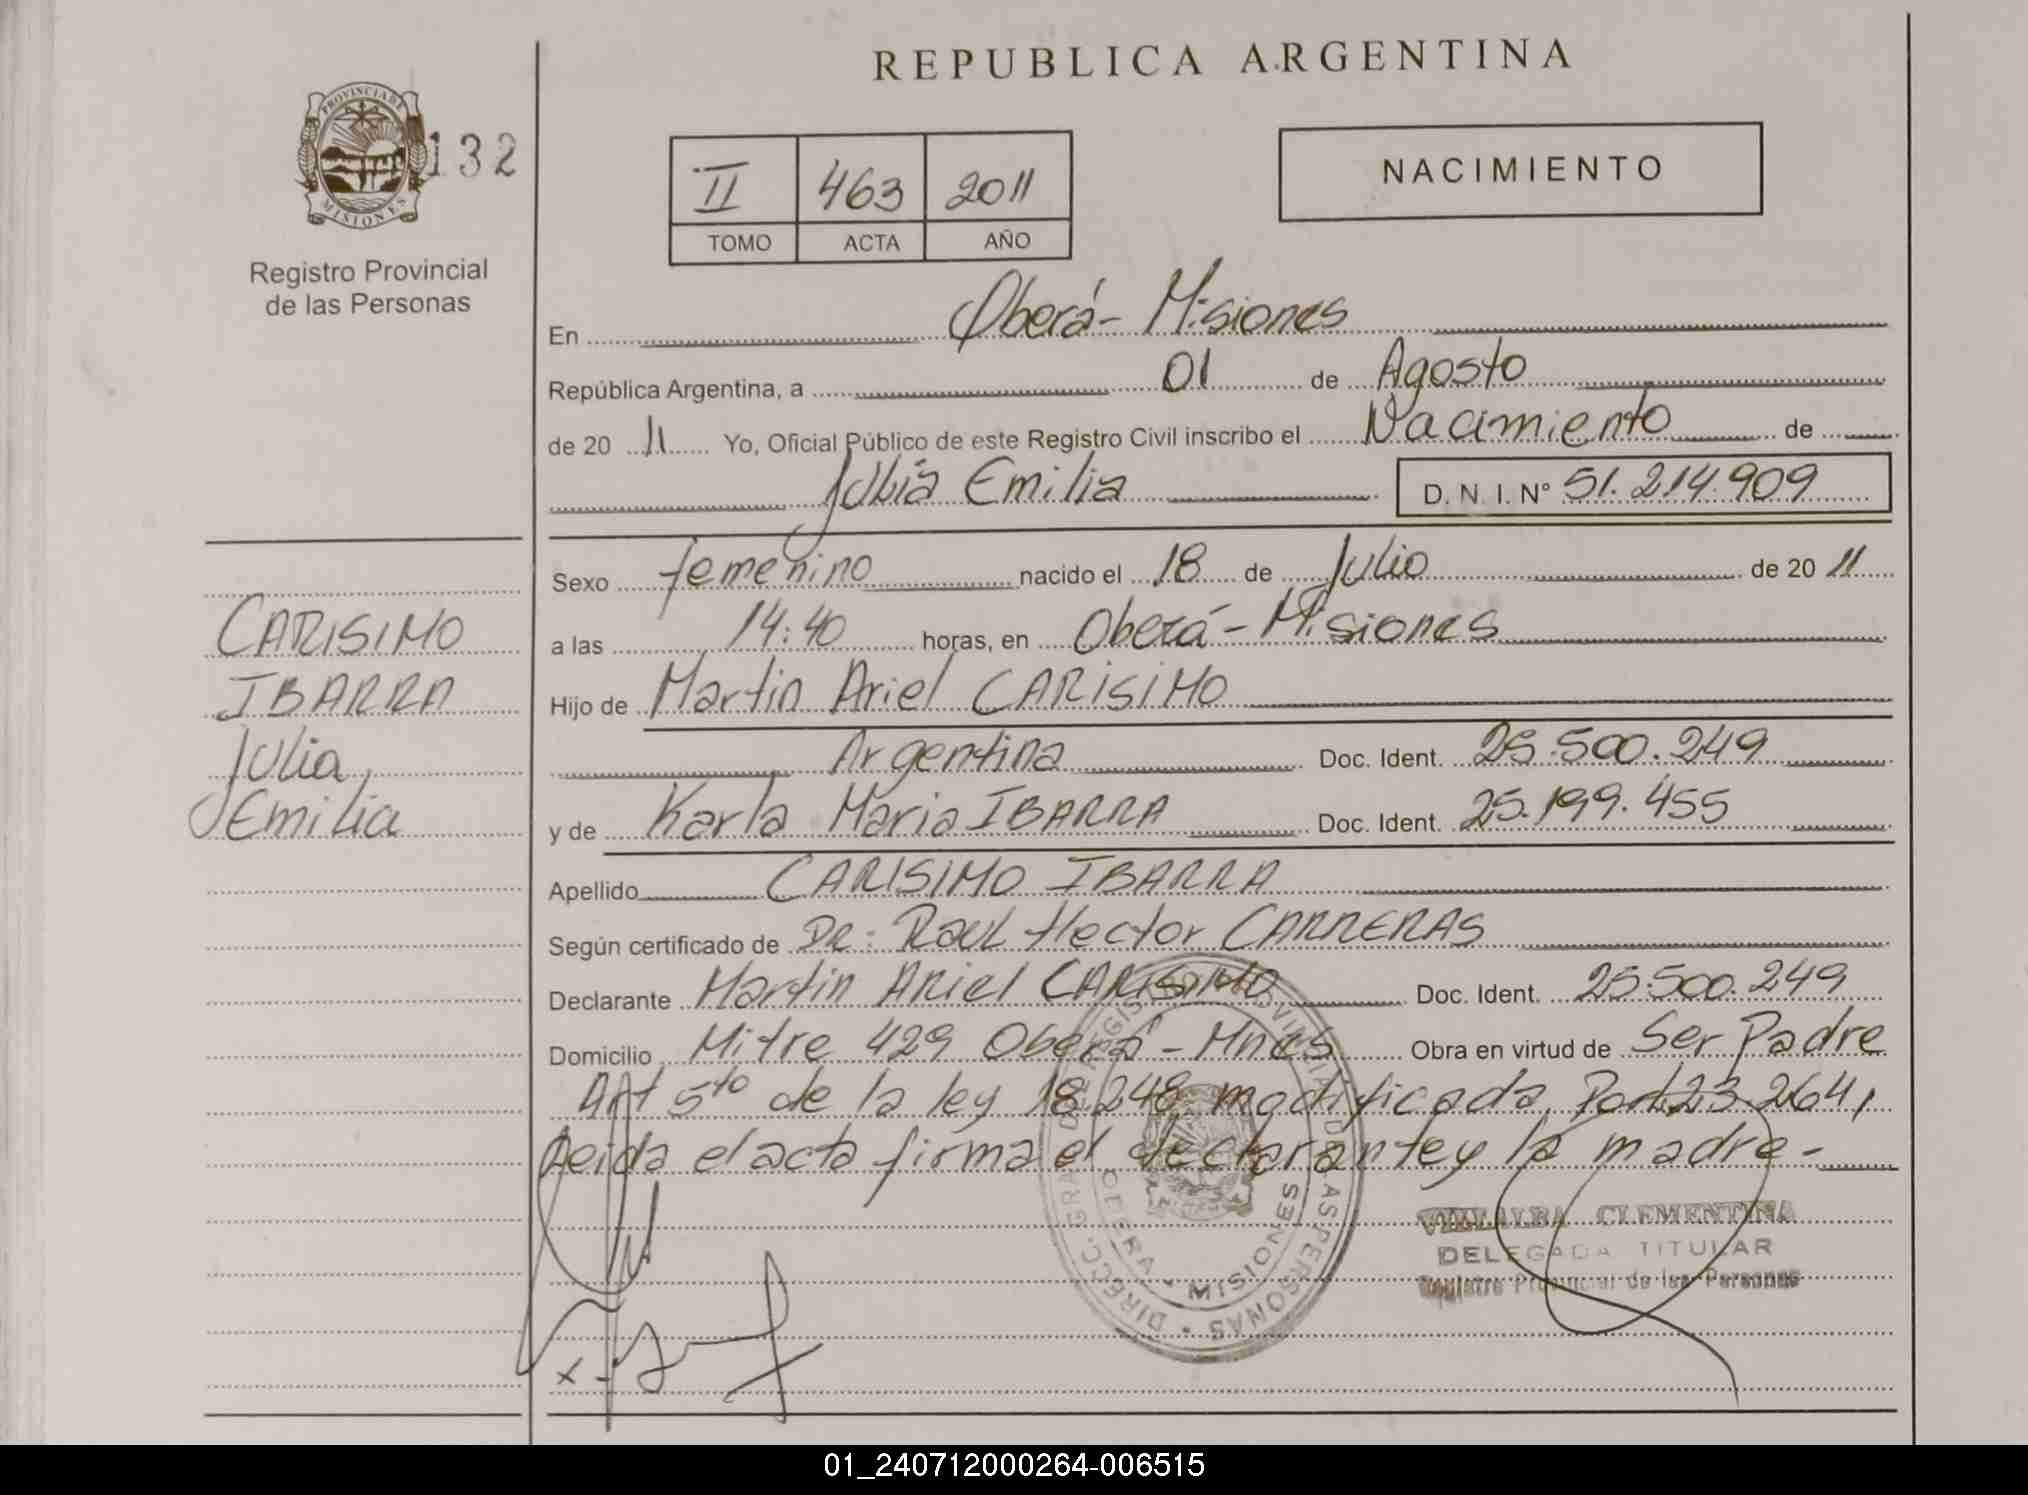 REPUBLICA ARGENTINA
PROVINCIA DE
MISIONES
132
Registro Provincial
de las Personas
II 463 2011
TOMO ACTA AÑO
NACIMIENTO
En Oberá - Misiones
República Argentina, a 01 de Agosto
de 20 11 Yo, Oficial Público de este Registro Civil inscribo el Nacimiento de
Julia Emilia D. N. I. Nº 51.214.909
Sexo femenino nacido el 18 de Julio de 20 11
a las 14:40 horas, en Oberá - Misiones
Hijo de Martin Ariel CARISIMO
Argentina Doc. Ident. 25.500.249
y de Karla Maria IBARRA Doc. Ident. 25.199.455
Apellido CARISIMO IBARRA
Según certificado de DR: Raul Hector CARRERAS
Declarante Martin Ariel CARISIMO Doc. Ident. 25.500.249
Domicilio Mitre 429 Oberá - Mnes Obra en virtud de Ser Padre
Art 5to de la ley 18.248 modificada Por 23.264,
Leida el acta firma el declarante y la madre -
CARISIMO
IBARRA
Julia
Emilia
VILLALBA CLEMENTINA
DELEGADA TITULAR
Registro Provincial de las Personas
MISIONES
01_240712000264-006515